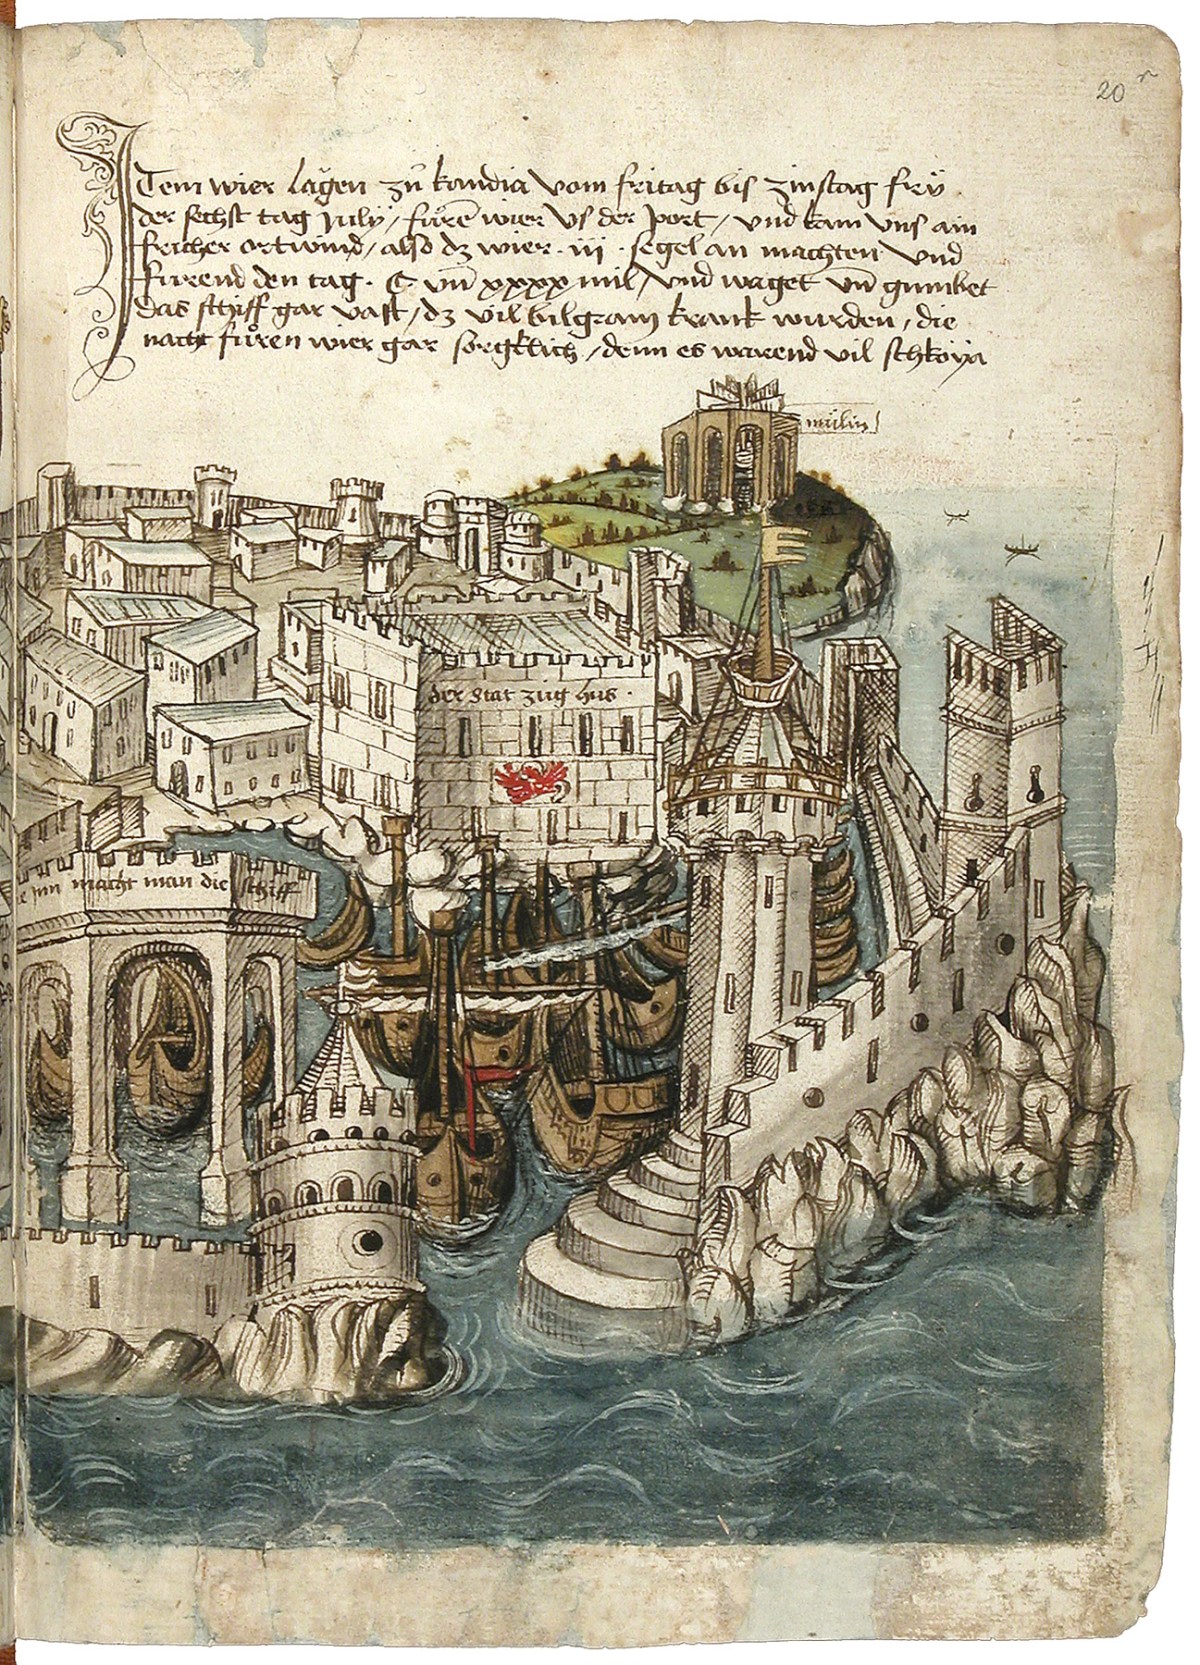 20r
Item wier lägen zů kandia vom fritag bis zinstag frÿ
der sechst tag julÿ / fůrē wier vs der port / vnd kam vns ain
fricher ortwind / also dz wier · iii · segel an machten vnd
fůrend den tag · C vnd xxxx mil / vnd waget vn̄ gumbet
das schiff gar vast / dz vil bilgram krank wurden / die
nacht fůren wier gar sorgklich / denn es warend vil schkoÿa
mülin
der stat züg hus ·
macht man die schiff